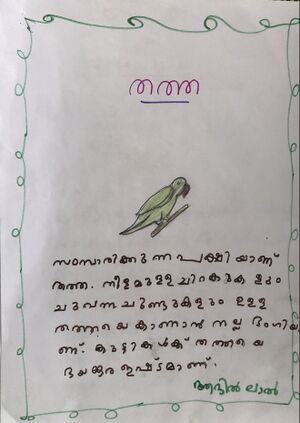 തത്ത
സംസാരിക്കുന്ന പക്ഷിയാണ്
തത്ത. നീളമുള്ള ചിറകുകളും
ചുവന്ന ചുണ്ടുകളും ഉള്ള
തത്തയെ കാണാൻ നല്ല ഭംഗിയാ
ണ്. കുട്ടികൾക്ക് തത്തയെ
ഭയങ്കര ഇഷ്ടമാണ്.
ആദിൽ ലാൽ